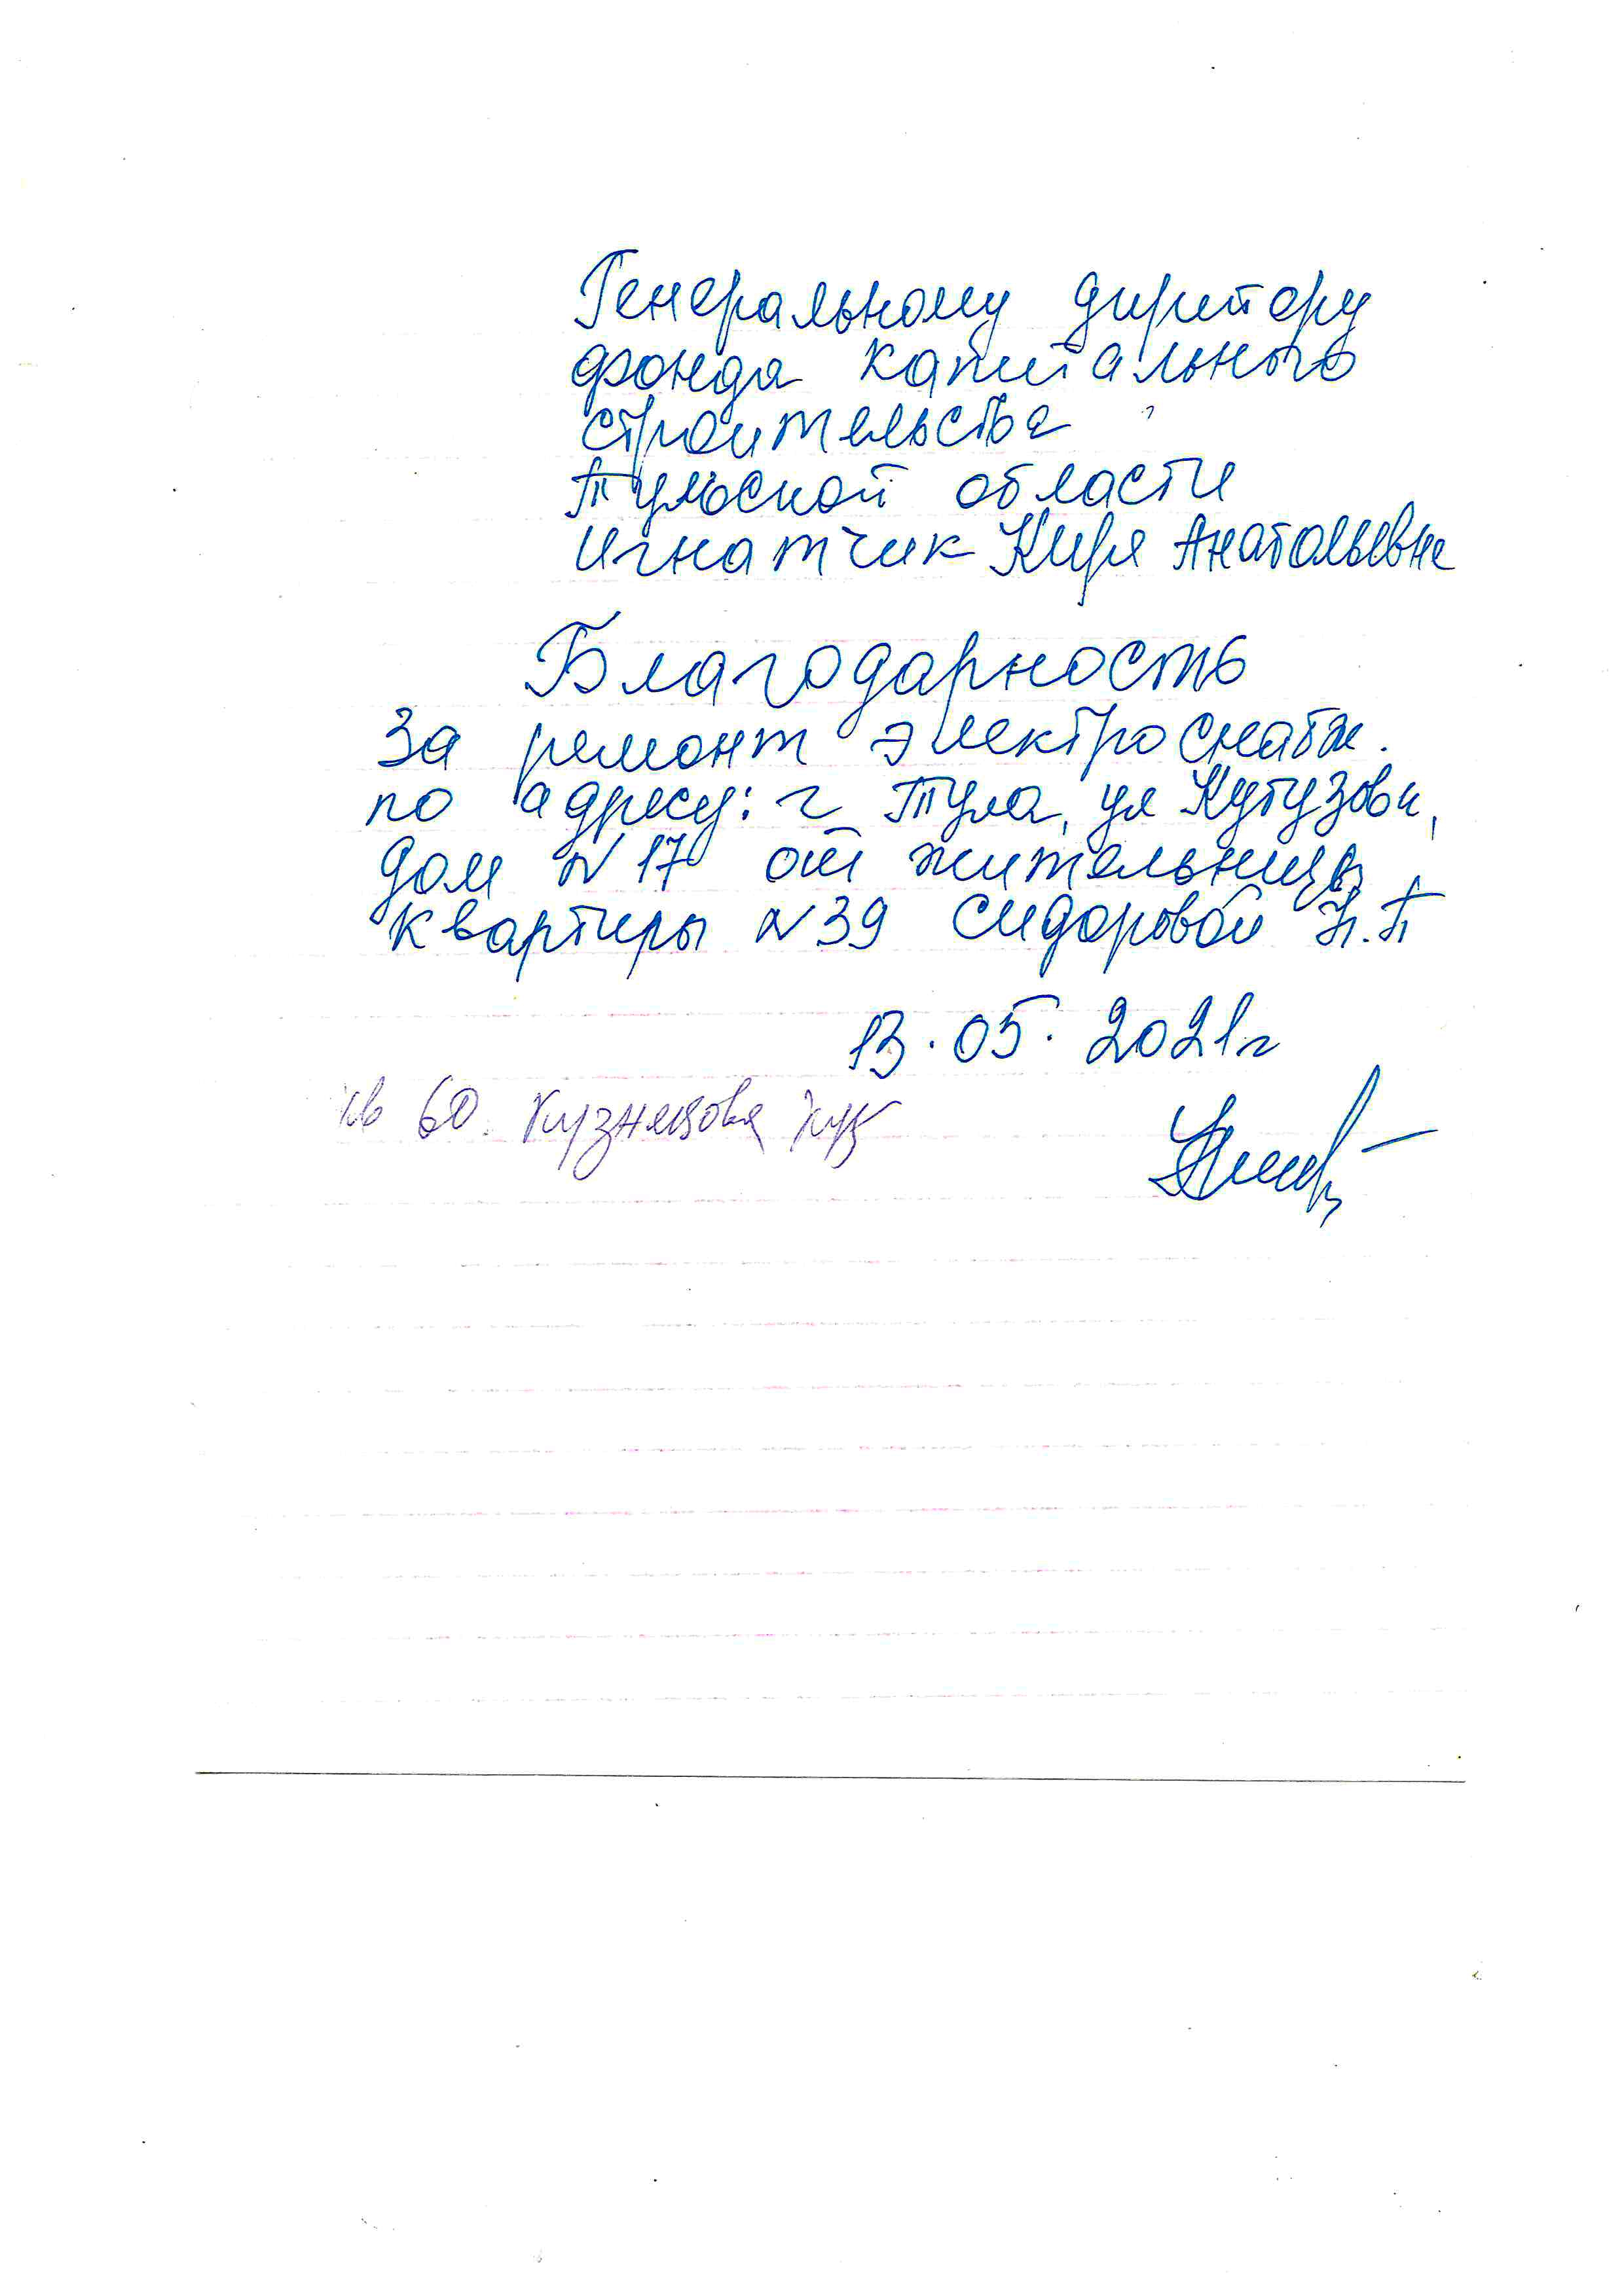 Генеральному директору
фонда капитального
строительства
Тульской области
Игнатчик Кире Анатольевне
Благодарность
За ремонт электроснабж.
по адресу: г Тула, ул Кутузова,
дом N 17 от жительницы
квартиры N 39 Сидоровой Н.П
13.05.2021г
кв 60. Кузнецова